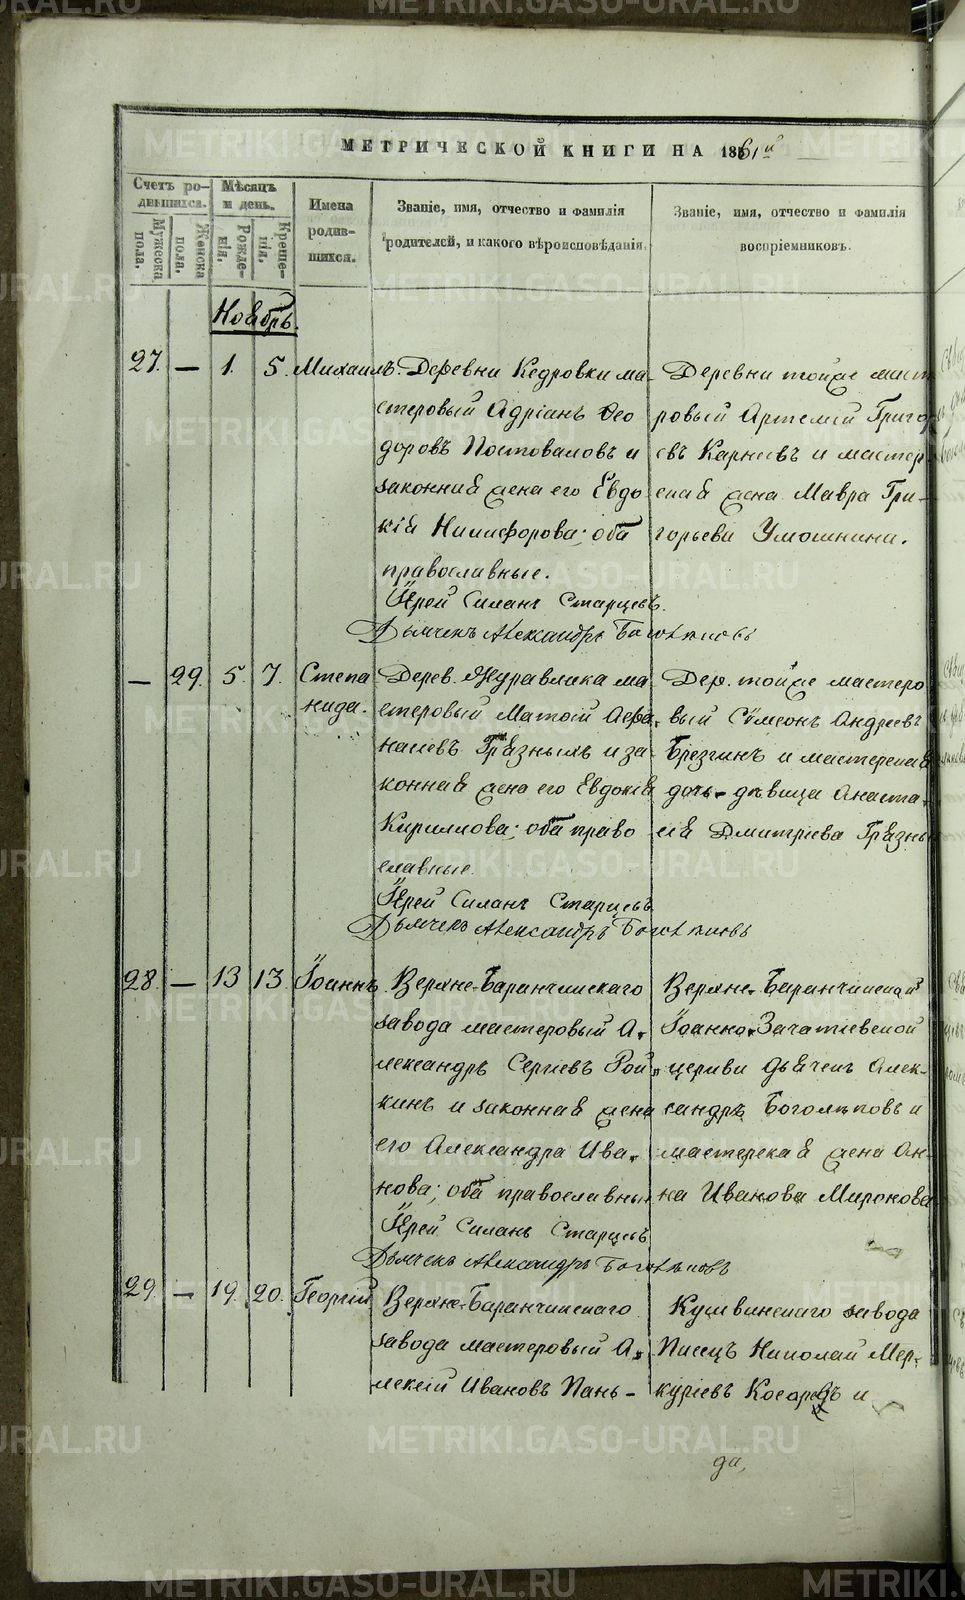 МЕТРИЧЕСКОЙ КНИГИ НА 1861й
Счетъ ро-
дившихся.
Мѣсяцъ
и день.
Мужеска
пола.
Женска
пола.
Рожде-
нія.
Креще-
нія.
Имена
родив-
шихся.
Званіе, имя, отчество и фамилія
родителей, и какого вѣроисповѣданія.
Званіе, имя, отчество и фамилія
воспріемниковъ.
Ноябрь.
27. — 1. 5. Михаилъ.
Деревни Кедровки ма-
стеровый Адріанъ Ѳео
доровъ Постоваловъ и
законная жена его Евдо
кія Никифорова; оба
православные.
Іерей Силанъ Старцевъ.
Дьячекъ Александръ Боголѣповъ
Деревни тойже масте
ровый Артемій Григор
евъ Карнаевъ и мастер
ская жена Мавра Гри-
горьева Умошкина.
— 29. 5. 7. Степа
нида.
Дерев. Журавлика ма
стеровый Матѳій Аѳа
насіевъ Грязныхъ и за-
конная жена его Евдокія
Кириллова; оба право
славные.
Іерей Силанъ Старцевъ
Дьячекъ Александръ Боголѣповъ
Дер. тойже мастеро
вый Сѵмеонъ Андреевъ
Брезгинъ и мастерская
дочь-дѣвица Анаста-
сія Дмитріева Грязны
28. — 13 13. Іоаннъ.
Верхне-Баранчинскаго
завода мастеровый А-
лександръ Сергіевъ Рой-
кинъ и законная жена
его Александра Ива-
нова; оба православны
Іерей Силанъ Старцевъ
Дьячекъ Александръ Боголѣповъ
Верхне-Баранчинской
Іоанно-Зачатіевской
церкви дьячекъ Алек-
сандръ Боголѣповъ и
мастерская жена Ан-
на Иванова Миронова
29. — 19. 20. Георгій
Верхне-Баранчинскаго
завода мастеровый А-
лексій Ивановъ Пань-
Кушвинскаго завода
Писецъ Николай Мер-
куріевъ Косаревъ и
да,
METRIKI.GASO-URAL.RU